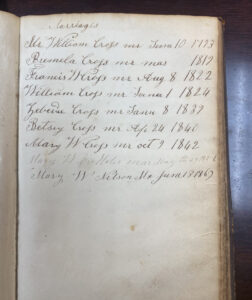 Marriages
Mr. William Cross mr June 10 1793
Pamela Cross mr mas 1819
Francis W Cross mr Aug 8 1822
William Cross mr Janua 1 1824
Zebedee Cross mr Janu 8 1839
Betsey Cross mr Ap 24 1840
Mary W Cross mr oct 9 1842
Mary W
Mary W Nilson Ma June 18 1867